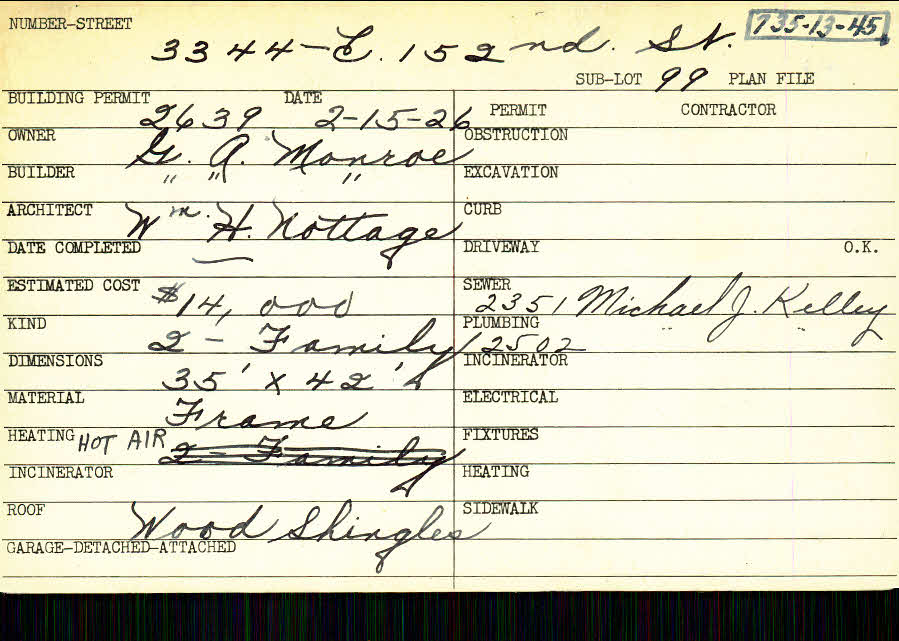 NUMBER-STREET 735-13-45
3344-E. 152nd. St.
SUB-LOT 99 PLAN FILE
BUILDING PERMIT 2639 DATE 2-15-26
PERMIT CONTRACTOR
OWNER G. A. Monroe
OBSTRUCTION
BUILDER " " "
EXCAVATION
ARCHITECT Wm. H. Nottage
CURB
DATE COMPLETED
DRIVEWAY O.K.
ESTIMATED COST $14,000
SEWER 2351 Michael J. Kelley
KIND 2-Family
PLUMBING 2502 " "
DIMENSIONS 35' x 42'
INCINERATOR
MATERIAL Frame
ELECTRICAL
HEATING HOT AIR 2-Family
FIXTURES
INCINERATOR
HEATING
ROOF Wood Shingles
SIDEWALK
GARAGE-DETACHED-ATTACHED